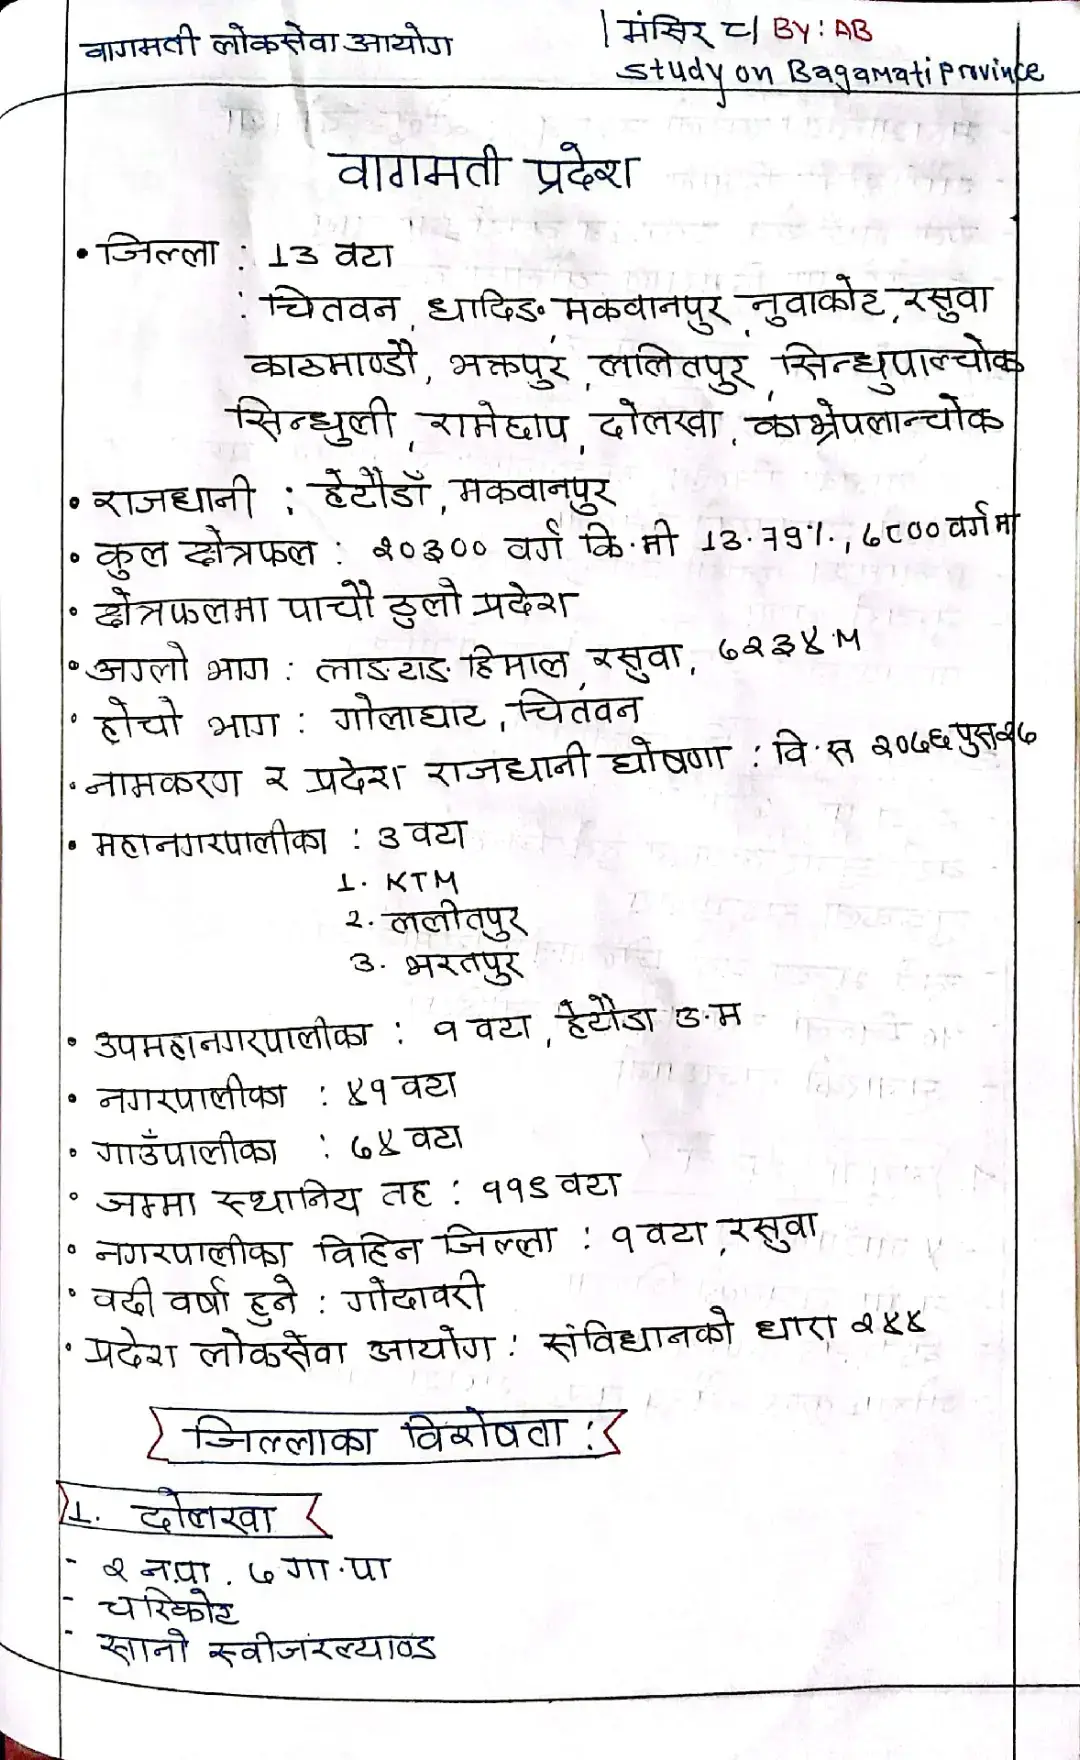 वागमती लोकसेवा आयोग
| मंसिर ८| BY: AB
study on Bagamati province
वागमती प्रदेश
• जिल्ला : 13 वटा
: चितवन, धादिङ मकवानपुर, नुवाकोट, रसुवा
काठमाण्डौ, भक्तपुर, ललितपुर, सिन्धुपाल्चोक
सिन्धुली, रामेछाप, दोलखा, काभ्रेपलान्चोक
• राजधानी : हेटौडाँ, मकवानपुर
• कुल क्षेत्रफल : २०३०० वर्ग कि.मी 13.79%, ७८०० वर्ग मा
• क्षेत्रफलमा पाचौ ठुलो प्रदेश
• अग्लो भाग : लाङटाङ हिमाल, रसुवा, ७२३४ M
• होचो भाग : गोलाघाट, चितवन
• नामकरण र प्रदेश राजधानी घोषणा : वि.स २०७६ पुस २७
• महानगरपालीका : ३ वटा
1. KTM
2. ललीतपुर
3. भरतपुर
• उपमहानगरपालीका : १ वटा, हेटौडा उ.म
• नगरपालीका : ४१ वटा
• गाउँपालीका : ७४ वटा
• जम्मा स्थानिय तह : ११९ वटा
• नगरपालीका विहिन जिल्ला : १ वटा, रसुवा
• वढी वर्षा हुने : गोदावरी
• प्रदेश लोकसेवा आयोग : संविधानको धारा २४४
जिल्लाका विशेषता :
1. दोलखा
- २ न.पा. ७ गा.पा
- चरिकोट
- सानो स्वीजरल्याण्ड